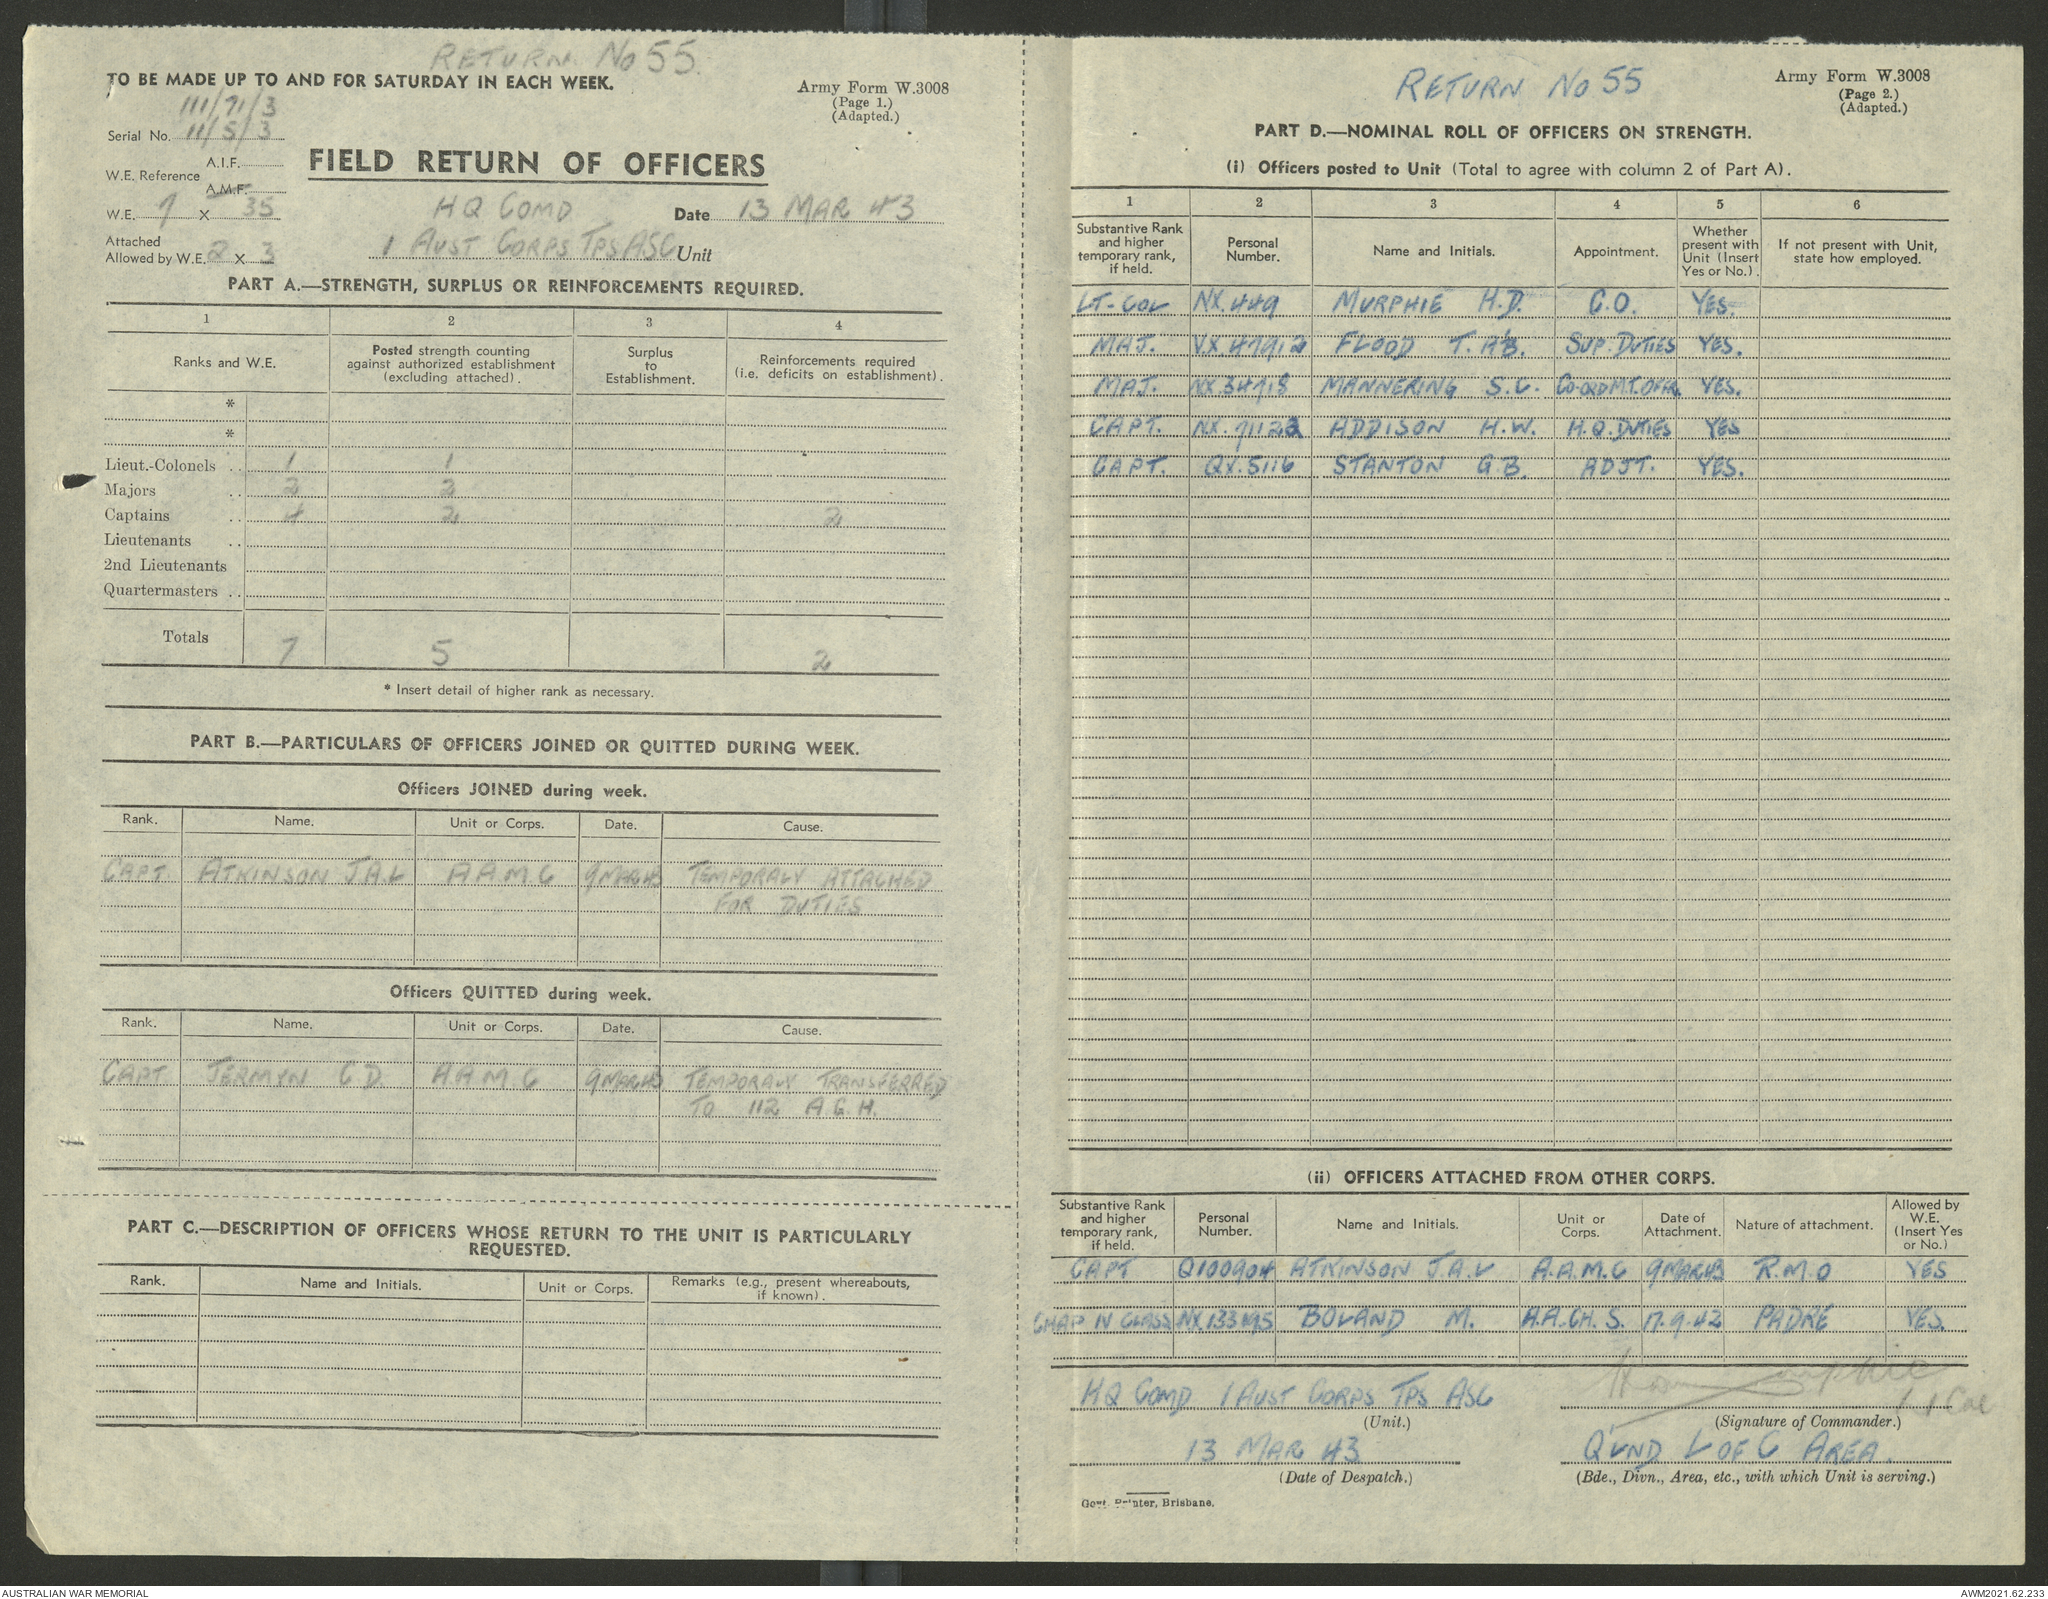 RETURN No 55.
TO BE MADE UP TO AND FOR SATURDAY IN EACH WEEK.
Army Form W.3008
(Page 1.)
(Adapted.)
111/71/3
Serial No. 11/5/3
W.E. Reference A.I.F.
A.M.F.
FIELD RETURN OF OFFICERS
W.E. 7 X 35
HQ COMD Date 13 MAR 43
Attached
Allowed by W.E. 2 X 3
1 AUST CORPS TPS ASC Unit
PART A.—STRENGTH, SURPLUS OR REINFORCEMENTS REQUIRED.
1 2 3 4
Ranks and W.E. Posted strength counting against authorized establishment (excluding attached). Surplus to Establishment. Reinforcements required (i.e. deficits on establishment).
*
*
Lieut.-Colonels .. 1 1
Majors .. 2 2
Captains .. 4 2 2
Lieutenants ..
2nd Lieutenants
Quartermasters ..
Totals 7 5 2
* Insert detail of higher rank as necessary.
PART B.—PARTICULARS OF OFFICERS JOINED OR QUITTED DURING WEEK.
Officers JOINED during week.
Rank. Name. Unit or Corps. Date. Cause.
CAPT. ATKINSON J.A.L A.A.M.C 9MAR43 TEMPORALY ATTACHED
FOR DUTIES
Officers QUITTED during week.
Rank. Name. Unit or Corps. Date. Cause.
CAPT JERMYN C D. A.A.M.C 9MAR43 TEMPORALY TRANSFERRED
TO 112 A.G.H.
PART C.—DESCRIPTION OF OFFICERS WHOSE RETURN TO THE UNIT IS PARTICULARLY
REQUESTED.
Rank. Name and Initials. Unit or Corps. Remarks (e.g., present whereabouts, if known).
RETURN No 55
Army Form W.3008
(Page 2.)
(Adapted.)
PART D.—NOMINAL ROLL OF OFFICERS ON STRENGTH.
(i) Officers posted to Unit (Total to agree with column 2 of Part A).
1 2 3 4 5 6
Substantive Rank and higher temporary rank, if held. Personal Number. Name and Initials. Appointment. Whether present with Unit (Insert Yes or No.). If not present with Unit, state how employed.
LT-COL NX.449 MURPHIE H.D. C.O. YES.
MAJ. VX.47912 FLOOD T.A.B. SUP. DUTIES YES.
MAJ. NX.34718 MANNERING S.C. CO-ORD M.T. OFFR. YES.
CAPT. NX.71122 ADDISON H.W. H.Q. DUTIES YES
CAPT. QX.5116 STANTON G.B. ADJT. YES.
(ii) OFFICERS ATTACHED FROM OTHER CORPS.
Substantive Rank and higher temporary rank, if held. Personal Number. Name and Initials. Unit or Corps. Date of Attachment. Nature of attachment. Allowed by W.E. (Insert Yes or No.)
CAPT Q100904 ATKINSON J.A.L A.A.M.C 9MAR43 R.M.O YES
CHAP IV CLASS BOLAND M. A.A.CH.S. 17.9.42 PADRE YES.
HQ COMD 1 AUST CORPS TPS ASC Lt Col
(Unit.) (Signature of Commander.)
13 MAR 43 Q'LND L OF C AREA.
(Date of Despatch.) (Bde., Divn., Area, etc., with which Unit is serving.)
Govt. Printer, Brisbane.
AUSTRALIAN WAR MEMORIAL AWM2021.62.233